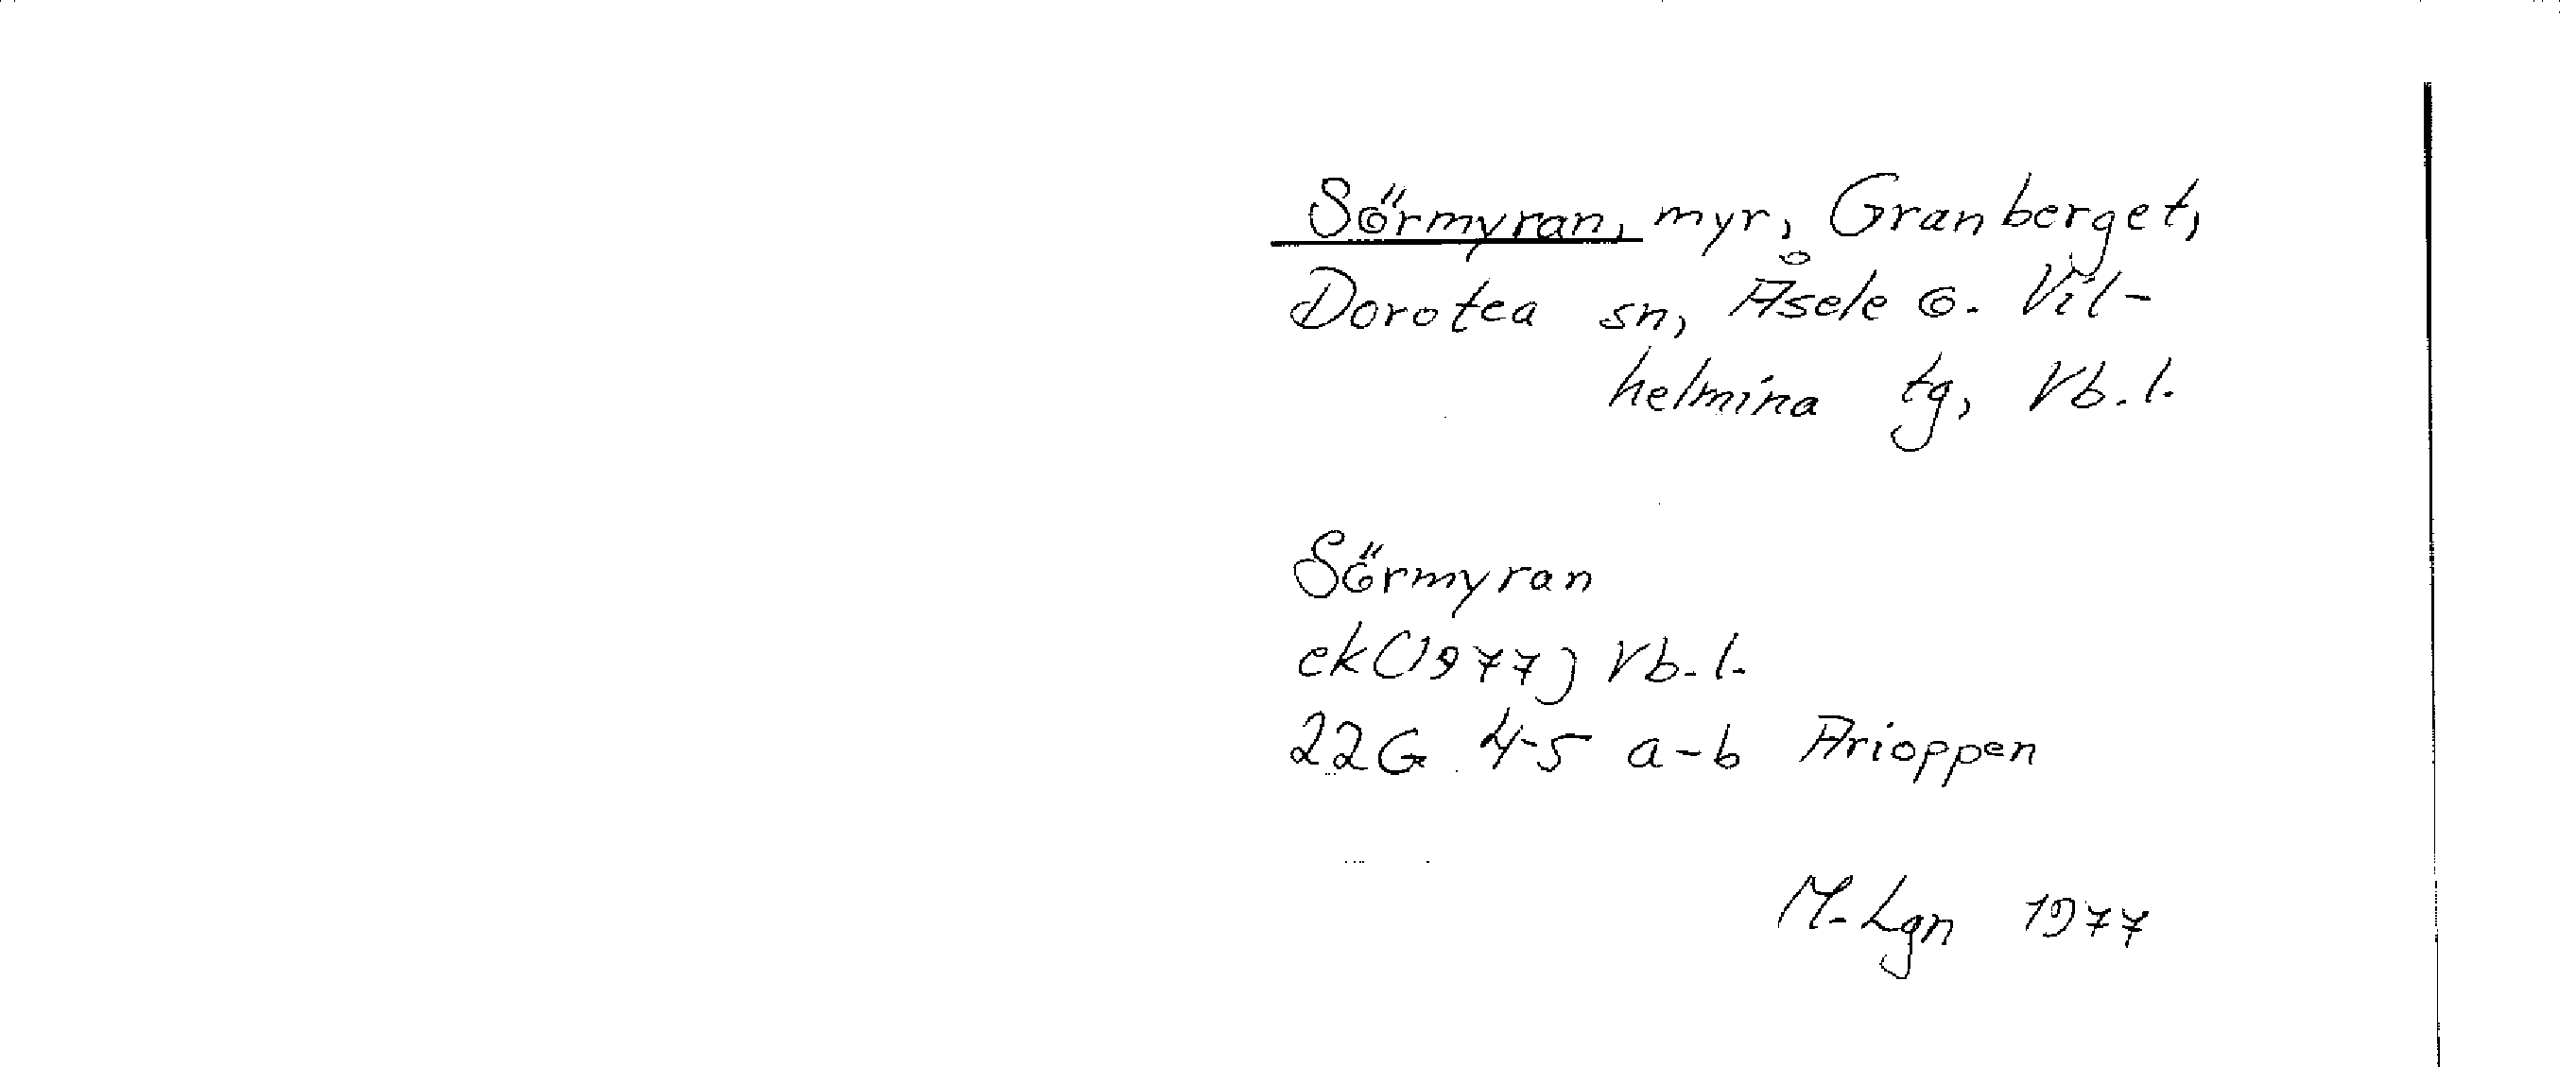 Sörmyran, myr, Granberget,
Dorotea sn, Åsele o. Vil-
helmina tg, Vb.l.
Sörmyran
ek(1977) Vb.l.
22G 4-5 a-b Arioppen
M-Lgn 1977